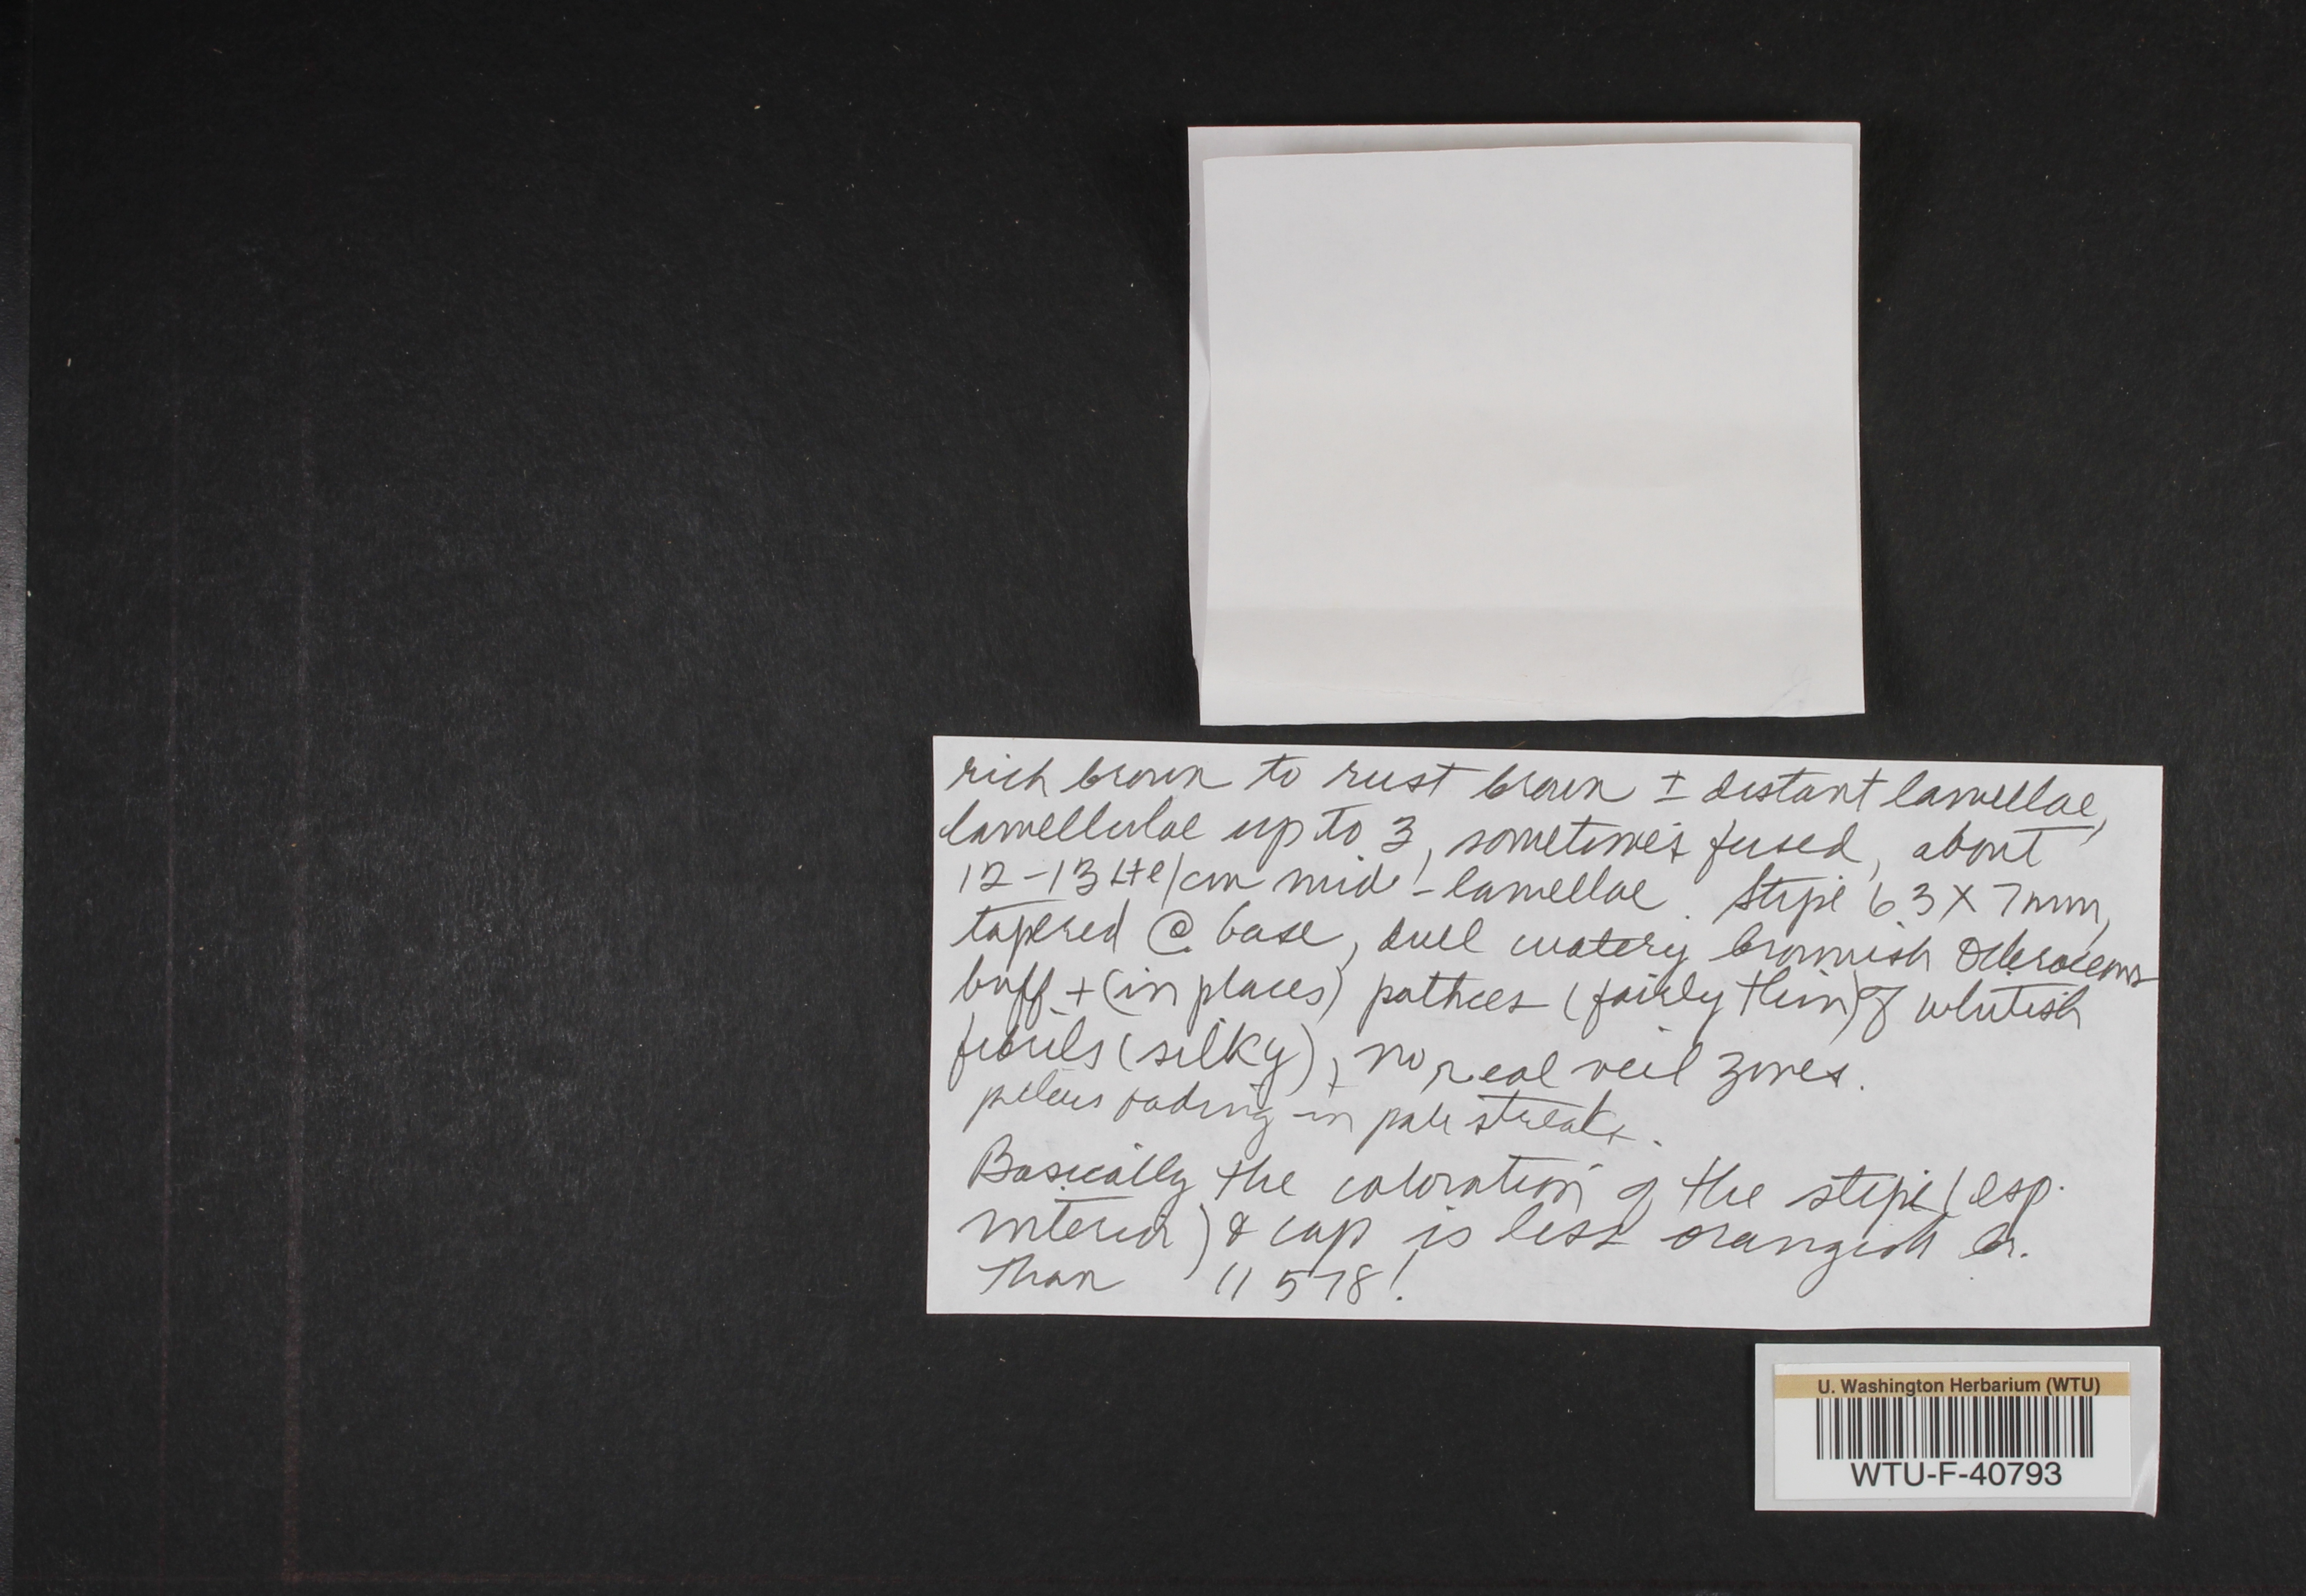 rich brown to rust brown ± distant lamellae,
lamellulae up to 3, sometimes fused, about
12-13 L+l/cm mid-lamellae. Stipe 63 X 7mm,
tapered @ base, dull watery brownish ochraceous
buff + (in places) patches (fairly thin) of whitish
fibrils (silky), no real veil zones.
pileus fading in pale streaks.
Basically the coloration of the stipe (esp.
interior) & cap is less orangish br.
than 11578!
U. Washington Herbarium (WTU)
WTU-F-40793